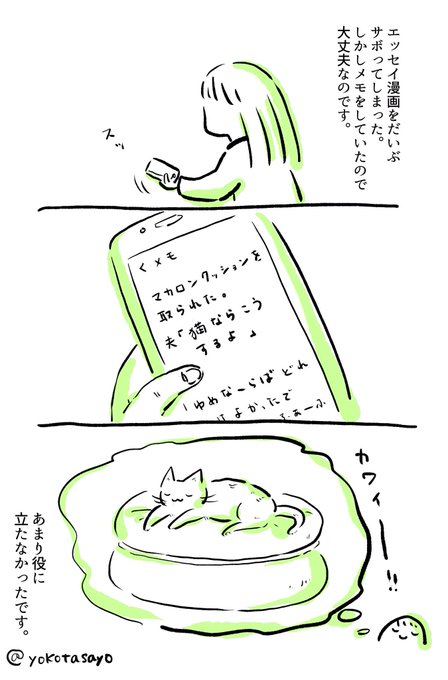 エッセイ漫画をだいぶ
サボってしまった。
しかしメモをしていたので
大丈夫なのです。
スッ
< メモ
マカロンクッションを
取られた。
夫「猫ならこう
するよ」
ゆめなーらばどれ
ほよかったで
カワィー!!
あまり役に
立たなかったです。
@yokotasayo